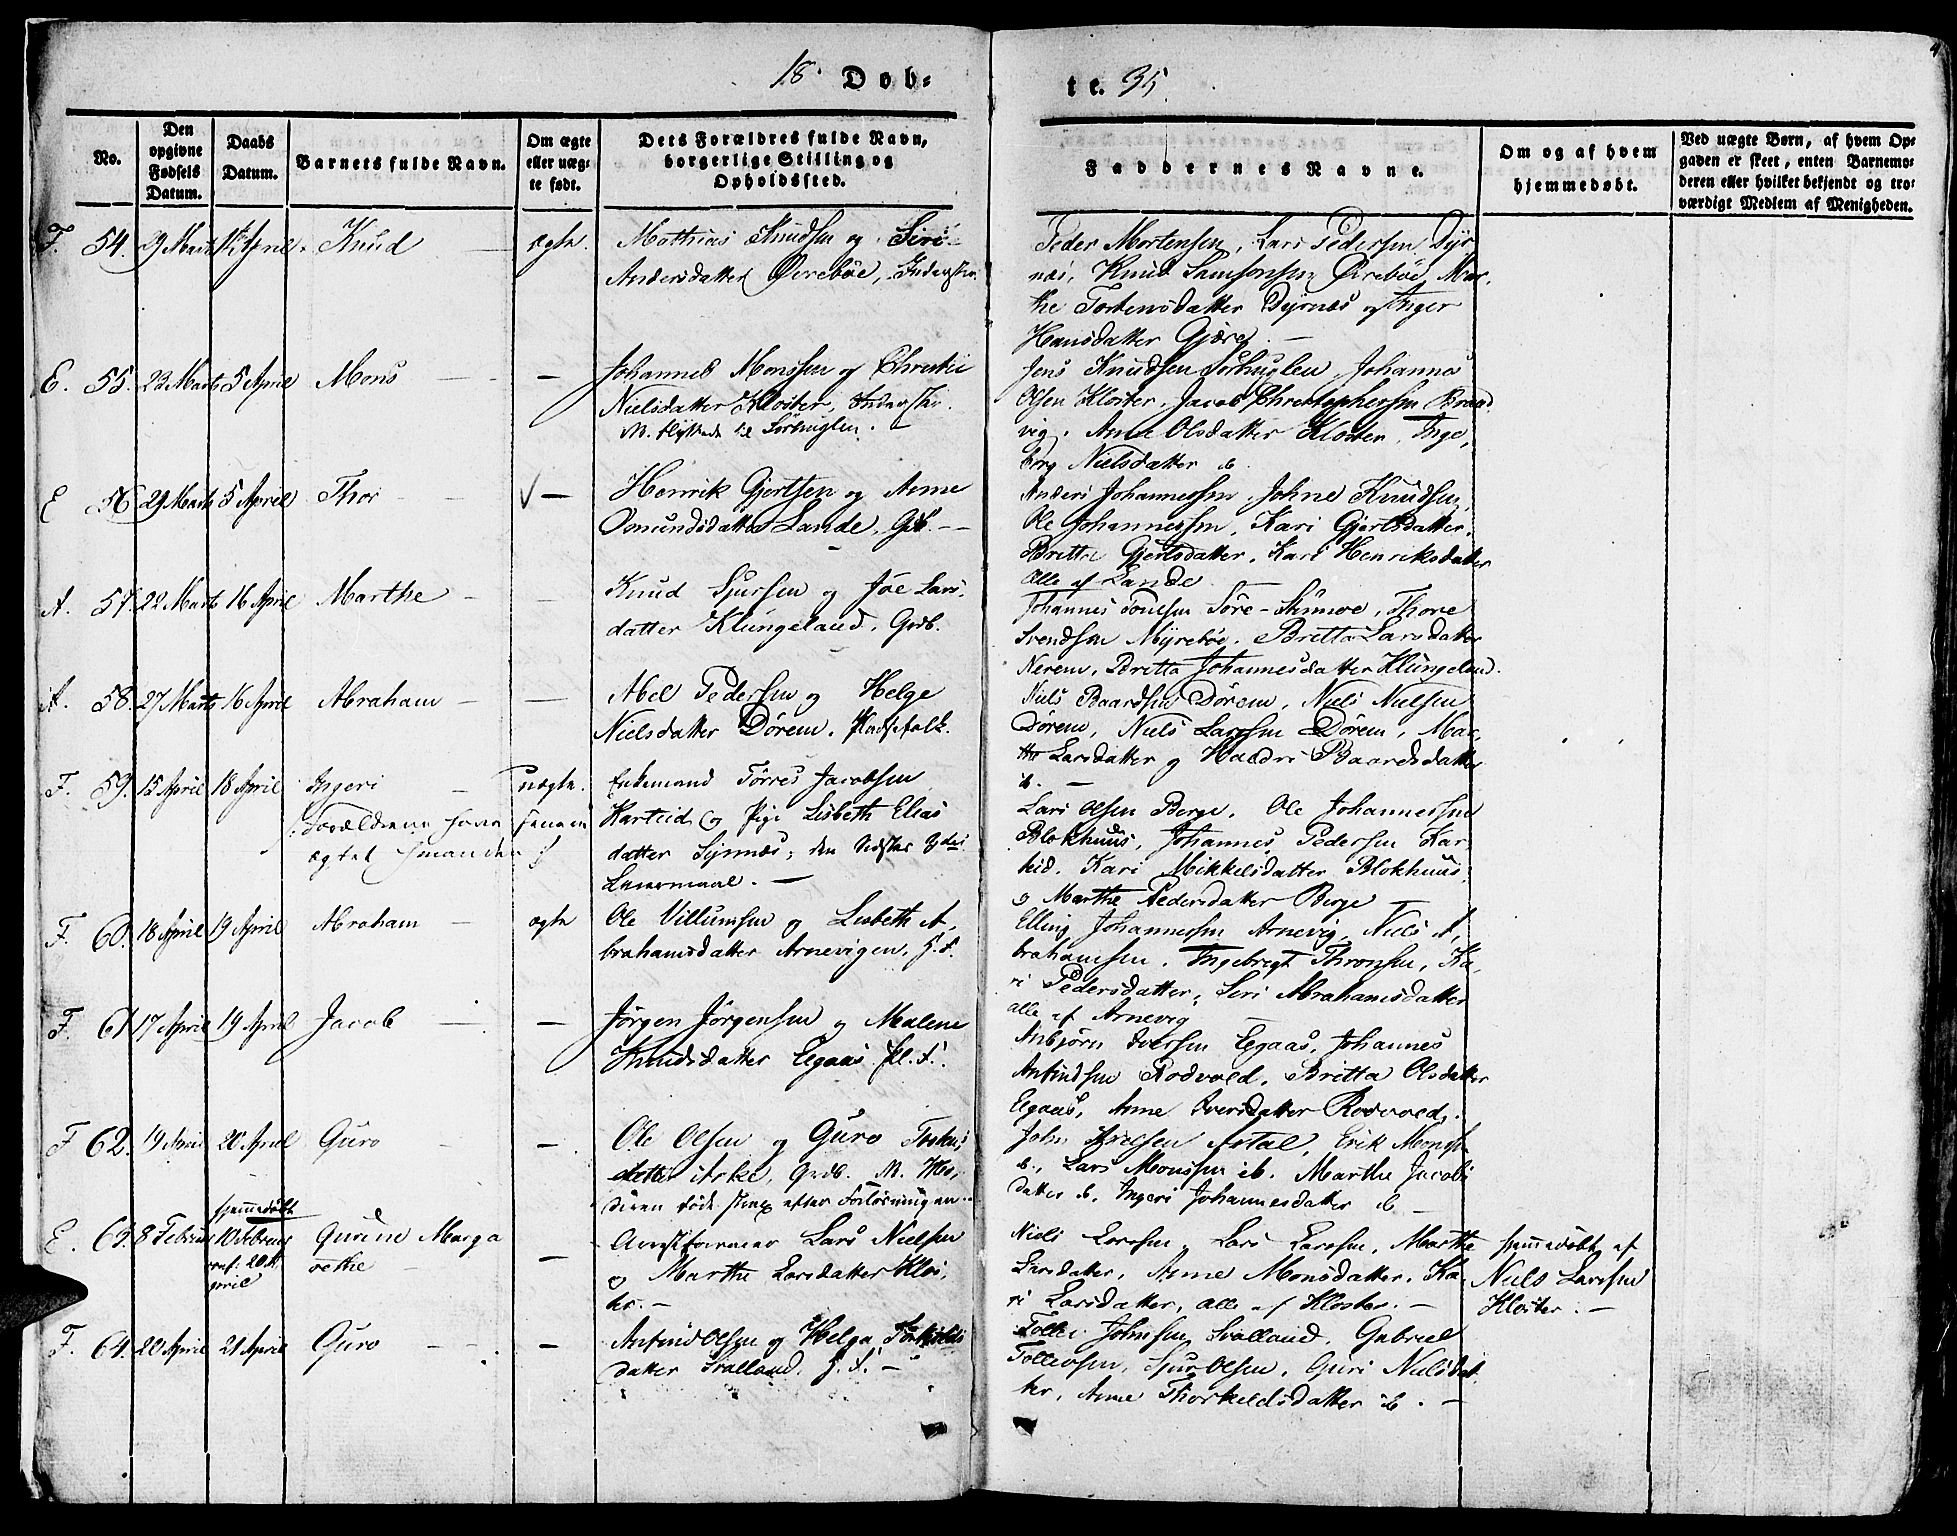 18 Döb-
te. 35.
4
No.
Den opgivne Fødsels Datum.
Daabs Datum.
Barnets fulde Navn.
Om ægte eller uægte født.
Dets Forældres fulde Navn, borgerlige Stilling og Opholdssted.
Faddernes Navne.
Om og af hvem hjemmedøbt.
Ved uægte Børn, af hvem Opgaven er skeet, enten Barnemoderen eller hvilket bekjendt og troværdigt Medlem af Menigheden.
F. 54. 29 Marts April Knud — ægte.
Mathias Knudsen og Siri
Andersdatter Øvrebøe, Inderster.
Peder Mortensen, Lars Pedersen Dyr-
næs, Knud Samsonsen Øvrebøe, Mar-
the Tostensdatter Dyrnæs og Inger
Hansdatter Gjære. —
E. 55. 23 Marts 5 April Mons — —
Johannes Monssen og Christie
Nielsdatter Kloster, Inderster.
M. flyttede til Sørhuglen. —
Jens Knudsen Sørhuglen, Johannes
Olsen Kloster, Jacob Christophersen Brand
veg, Anne Olsdatter Kloster, Inge-
borg Nielsdatter ib.
E 56 29 Marts 5 April Thor — √ —
Henrik Gjertsen og Anne
Osmundsdatter Lande, Gdb. —
Anders Johannessen, Johne Knudsen,
Ole Johannessen, Kari Gjertsdatter,
Britta Gjertsdatter, Kari Henriksdatter
alle af Lande.
A. 57. 22 Marts 16 April Marthe — —
Knud Sjursen og Joe Lars-
datter Klungeland, Grdb.
Johannes Tonesen Søre-Skimoe, Thore
Svendsen Myrebøe, Britta Larsdatter
Nerem, Britta Johannesdatter Klungeland.
A. 58. 27 Marts 16 April Abraham — —
Abel Pedersen og Helge
Nielsdatter Dørem, Pladsefolk.
Niels Baardsen Dørem, Niels Nielsen
Dørem, Niels Larssen Dørem, Mar-
tha Larsdatter og Haldri Baardsdatter
ib. —
F. 59. 15 April 18 April Ingeri — uægte.
Forældrene have senere
ægtet hinanden
Enkemand Tørres Jacobsen
Karteid og Pige Lisbeth Elias
datter Synnæs, den Sidstes
Leiermaal. —
Lars Olsen Berge, Ole Johannessen
Blokhuus, Johannes Pedersen Kar-
teid, Kari Mikkelsdatter Blokhuus,
og Marthe Pedersdatter Berge —
F. 60. 18 April 19 April Abraham — ægte
Ole Villumsen og Lisbeth A-
brahamsdatter Arnevigen, H.F.
Elling Johannessen Arnevig, Niels A-
brahamsen, Ingebregt Thronsen, Ka-
ri Pedersdatter, Siri Abrahamsdatter
alle af Arnevig
F. 61 17 April 19 April Jacob — —
Jørgen Jørgensen og Malene
Knudsdatter Egaas. Pl. F.
Anbjørn Iversen Egaas, Johannes
Anfindsen Rodvold, Britta Olsdatter
Egaas, Anne Iversdatter Rodvold.
F 62. 19 April 20 April Guro —
Ole Olsen og Guro Tosten-
datter Aske, Grdb. M. Mo-
deren døde strax efter Forløsningen.
John Arelsen Axdal, Erik Monssen
ib., Lars Monssen ib. Marthe Jacobs
datter ib, Ingeri Johannesdatter ib —
E. 63. 8 Februar hjemmedøbt 10 Februar conf. 20 April Gurine Marga
rethe — —
Lars Nielsen
og Marthe Larsdatter Klos-
ter. —
Niels Larssen, Lars Larssen, Marthe
Larsdatter, Anne Monsdatter, Ka-
ri Larsdatter, alle af Kloster. —
hjemmedøbt af
Niels Larssen
Kloster. —
F. 64. 20 April 21 April Guro — —
Anfind Olsen og Helga Torkilds
datter Svalland. H. F. —
Tollev Johnsen Svalland, Gabriel
Tollevsen, Sjur Olsen, Guri Nielsdat-
ter, Anne Thorkeldsdatter ib. —